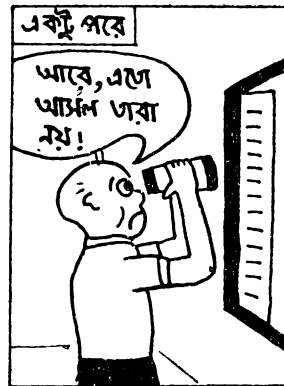 একটু পরে
আরে, এতো
আসল তারা
নয়!